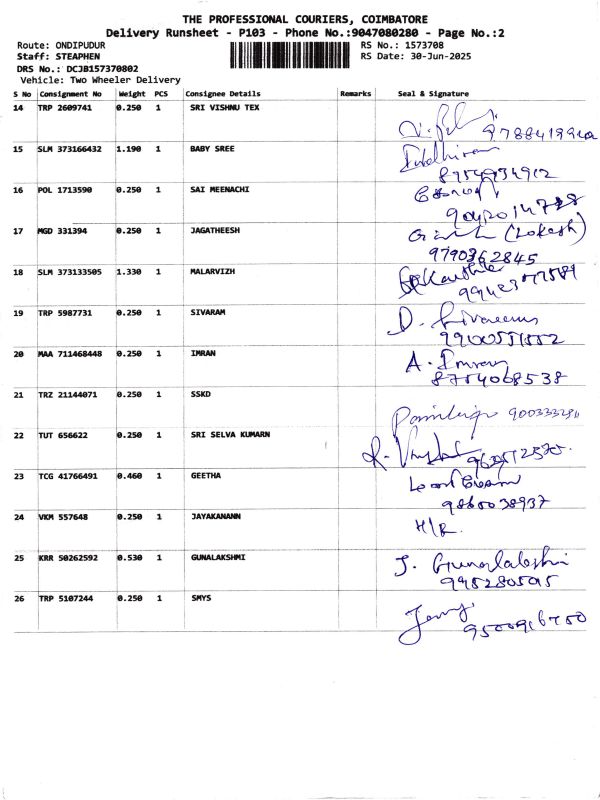 THE PROFESSIONAL COURIERS, COIMBATORE
Delivery Runsheet - P103 - Phone No.:9047080280 - Page No.:2
Route: ONDIPUDUR RS No.: 1573708
Staff: STEAPHEN RS Date: 30-Jun-2025
DRS No.: DCJB157370802
Vehicle: Two Wheeler Delivery
S No Consignment No Weight PCS Consignee Details Remarks Seal & Signature
14 TRP 2609741 0.250 1 SRI VISHNU TEX
15 SLM 373166432 1.190 1 BABY SREE
16 POL 1713590 0.250 1 SAI MEENACHI
17 MGD 331394 0.250 1 JAGATHEESH (Lokesh)
9790362845
18 SLM 373133505 1.330 1 MALARVIZH
19 TRP 5987731 0.250 1 SIVARAM
20 MAA 711468448 0.250 1 IMRAN A. Imran
8754068538
21 TRZ 21144071 0.250 1 SSKD
22 TUT 656622 0.250 1 SRI SELVA KUMARN
23 TCG 41766491 0.460 1 GEETHA
9865038937
24 VKM 557648 0.250 1 JAYAKANANN H/R.
25 KRR 50262592 0.530 1 GUNALAKSHMI J. Gunalakshmi
26 TRP 5107244 0.250 1 SMYS